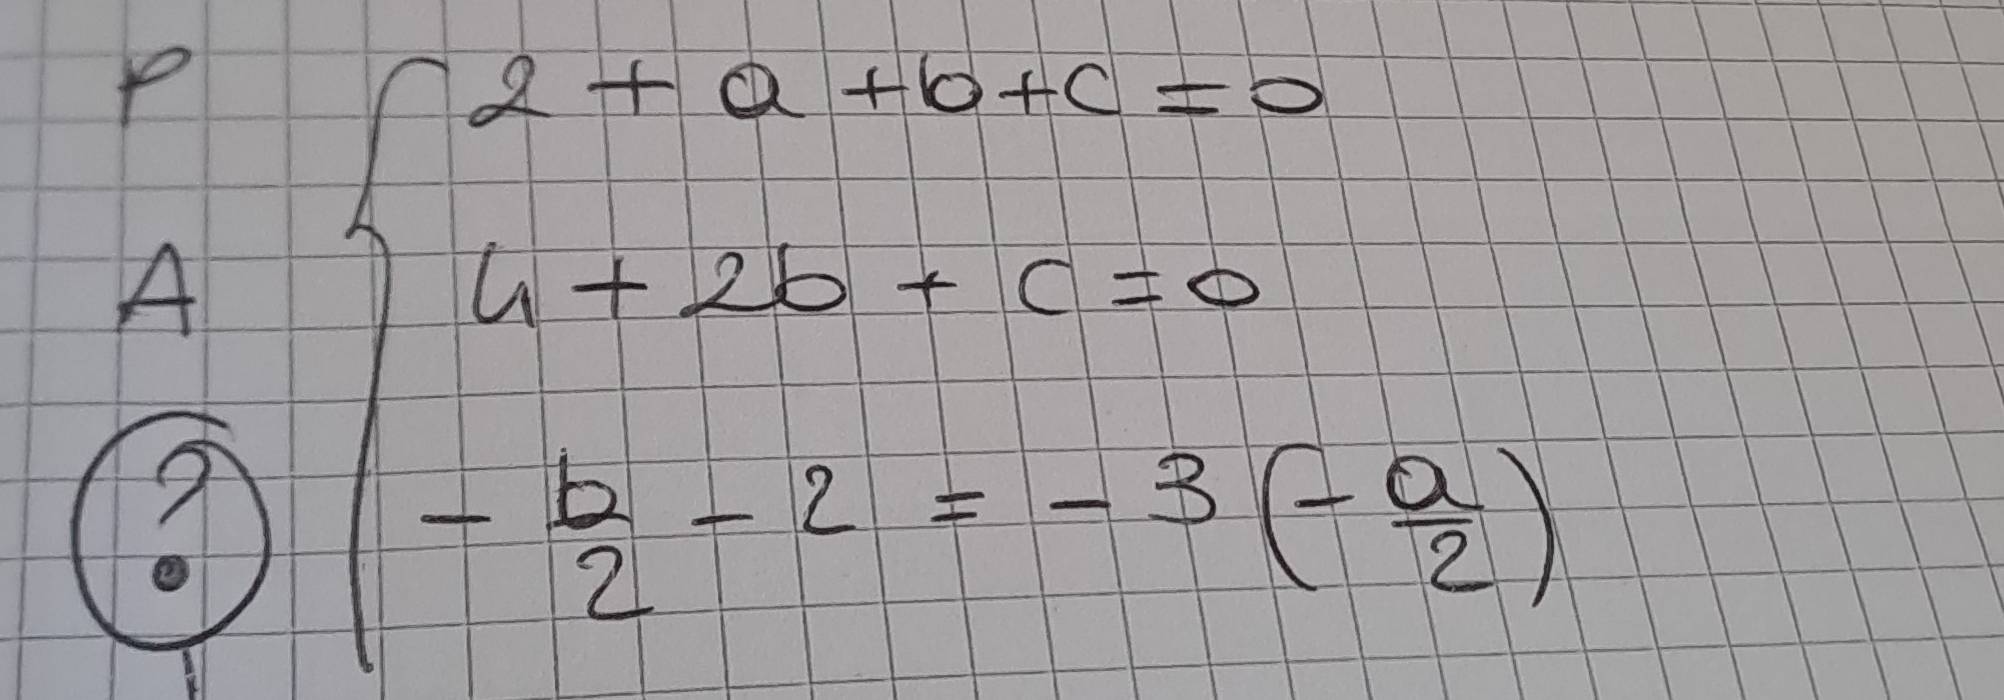 P 2 + a + b + c = 0
A 4 + 2b + c = 0
? - b/2 - 2 = - 3 (- a/2)